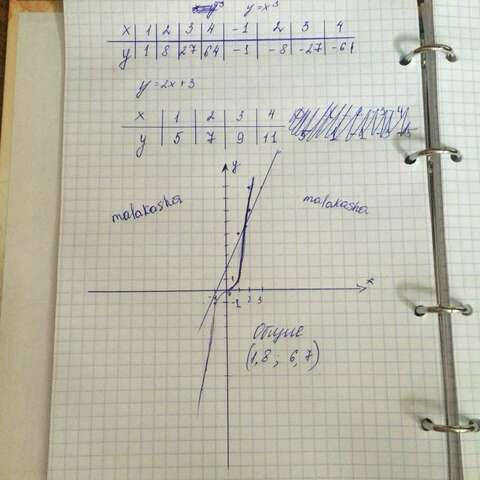 y=x³
x 1 2 3 4 -1 2 3 4
y 1 8 27 64 -1 -8 -27 -64
y=2x+3
x 1 2 3 4
y 5 7 9 11
y
malakasha malakasha
x
1
-1 1 2 3
Общие
(1,8; 6,7)